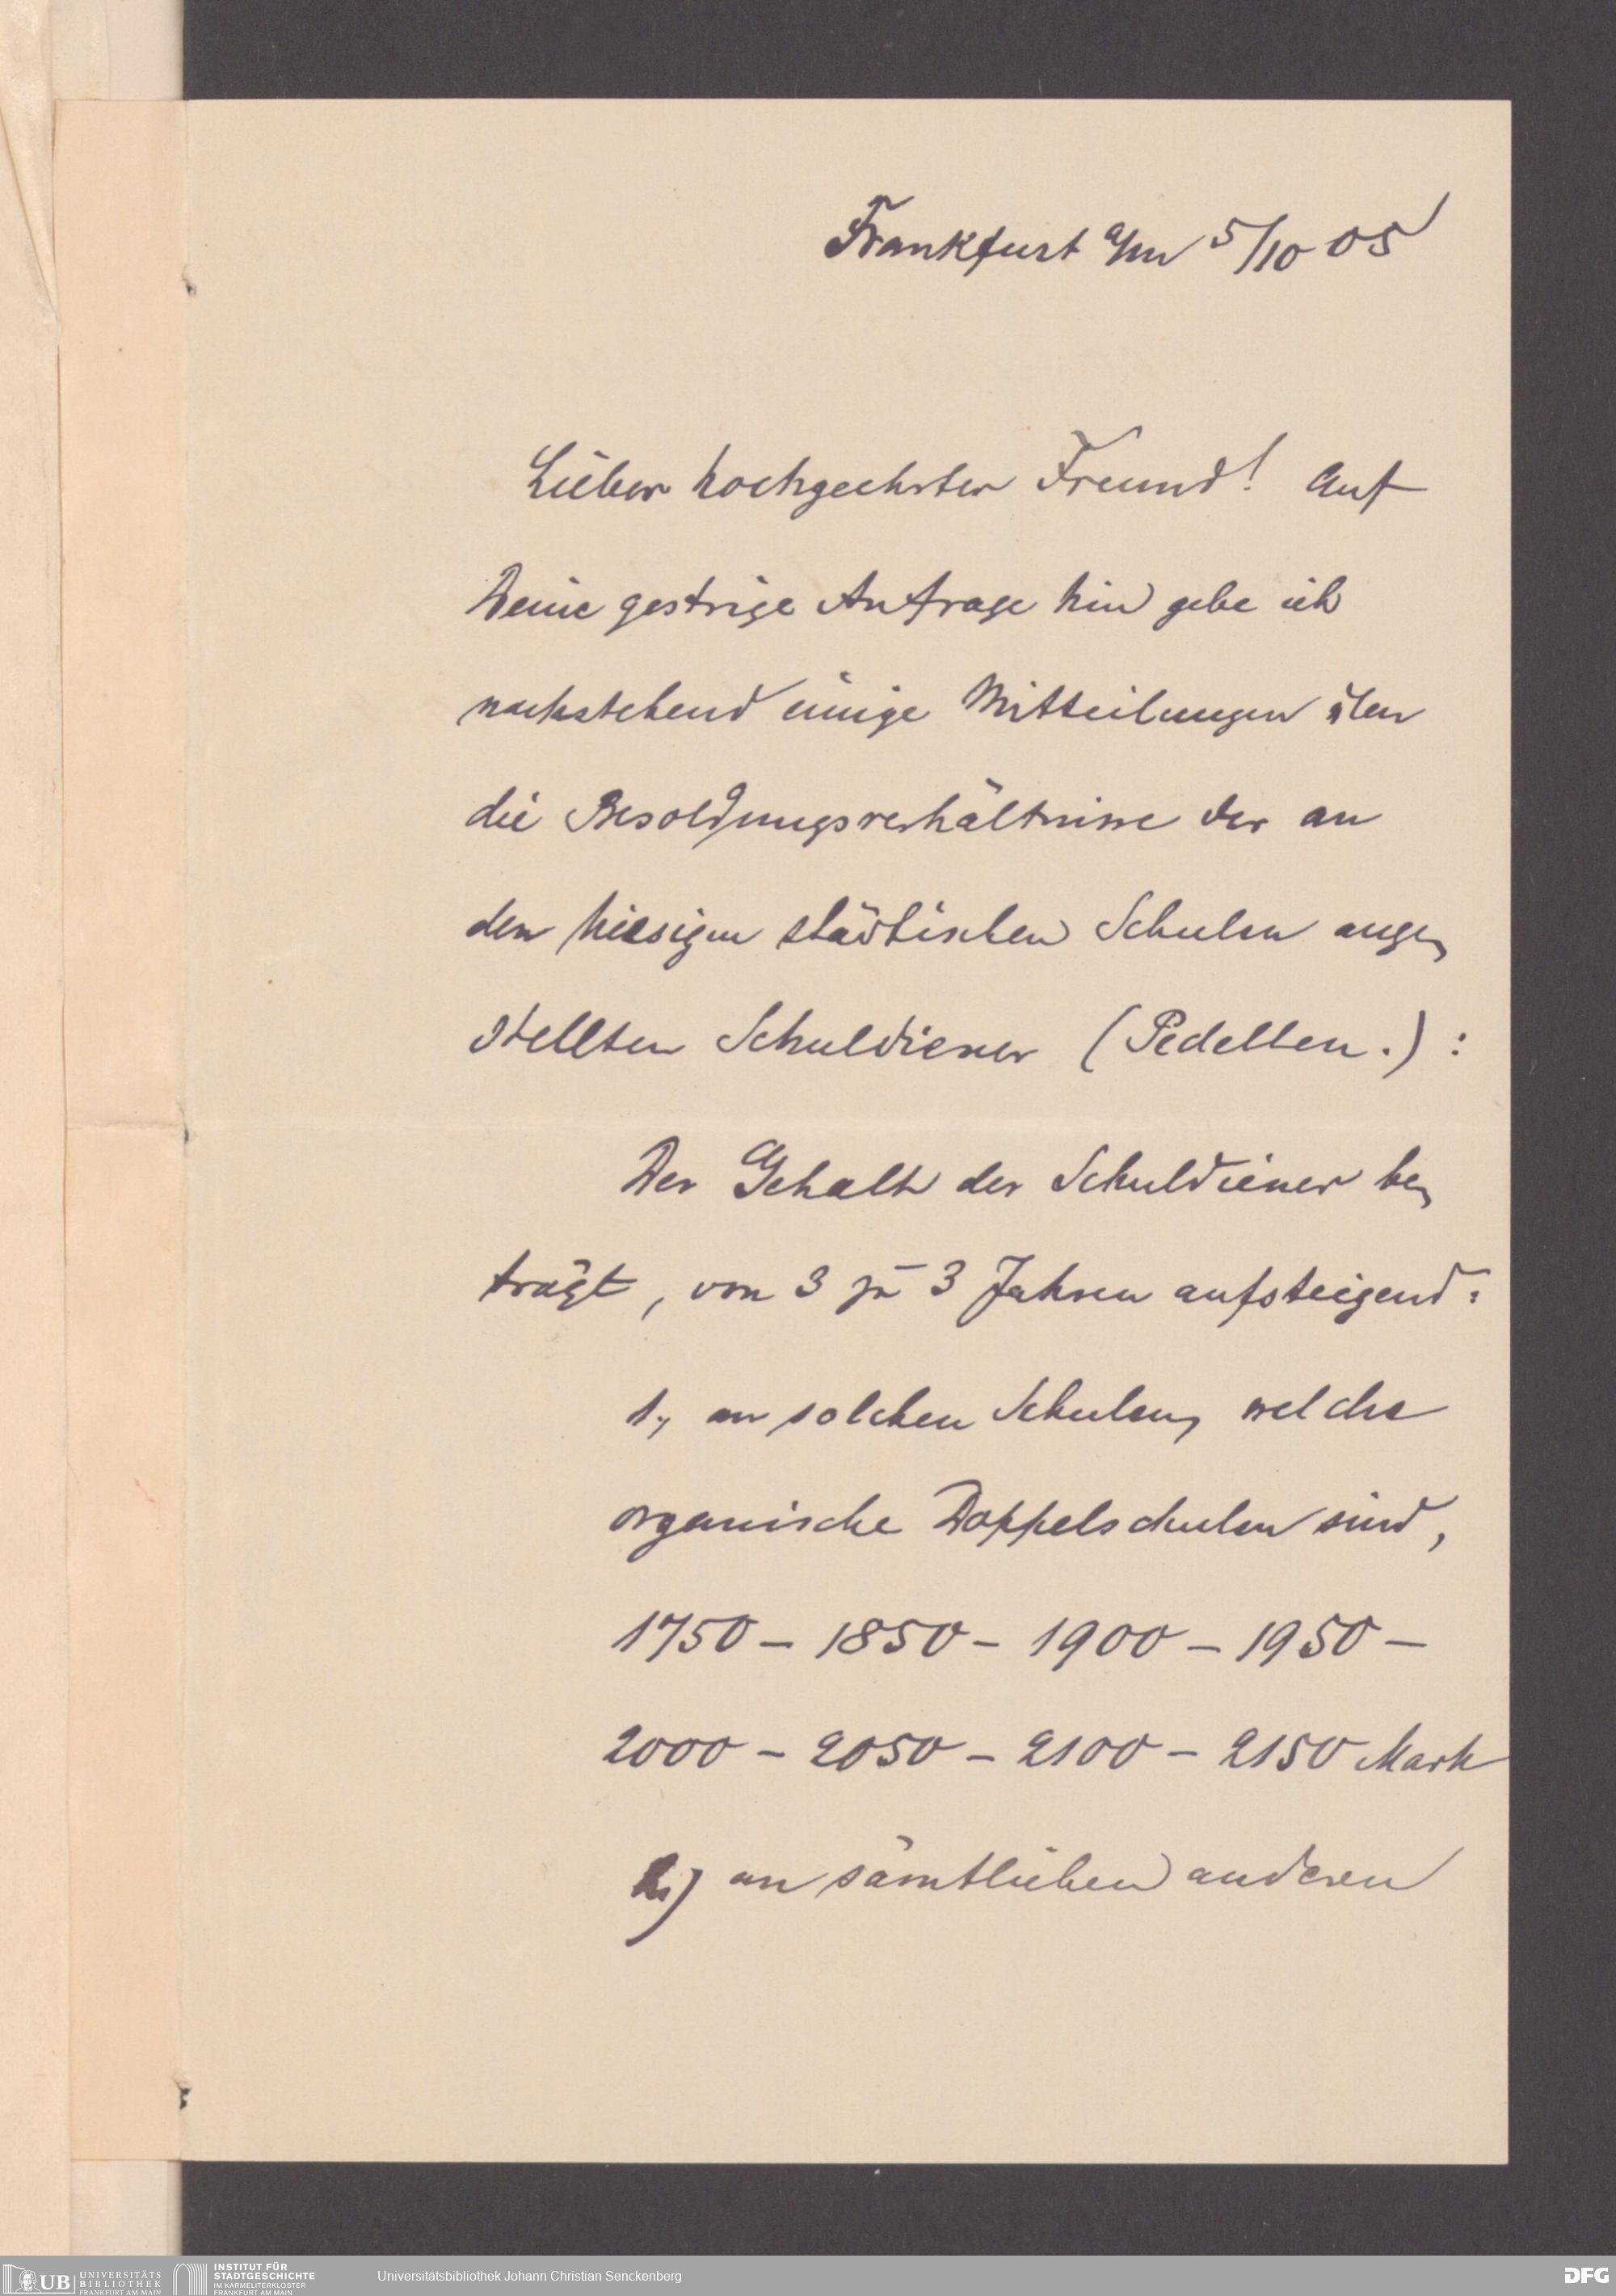 Frankfurt a/m 5/10 05
Lieber hochgeehrter Freund! Auf
Deine gestrige Anfrage hin gebe ich
nachstehend einige Mitteilungen über
die Besoldungsverhältnisse der an
den hiesigen städtischen Schulen ange-
stellten Schuldiener (Pedellen.):
Der Gehalt der Schuldiener be-
trägt, von 3 zu 3 Jahren aufsteigend:
1., an solchen Schulen, welche
organische Doppelschulen sind,
1750 – 1850 – 1900 – 1950 –
2000 – 2050 – 2100 – 2150 Mark
2.) an sämtlichen anderen
UB UNIVERSITÄTS BIBLIOTHEK FRANKFURT AM MAIN
INSTITUT FÜR STADTGESCHICHTE IM KARMELITERKLOSTER FRANKFURT AM MAIN
Universitätsbibliothek Johann Christian Senckenberg
DFG